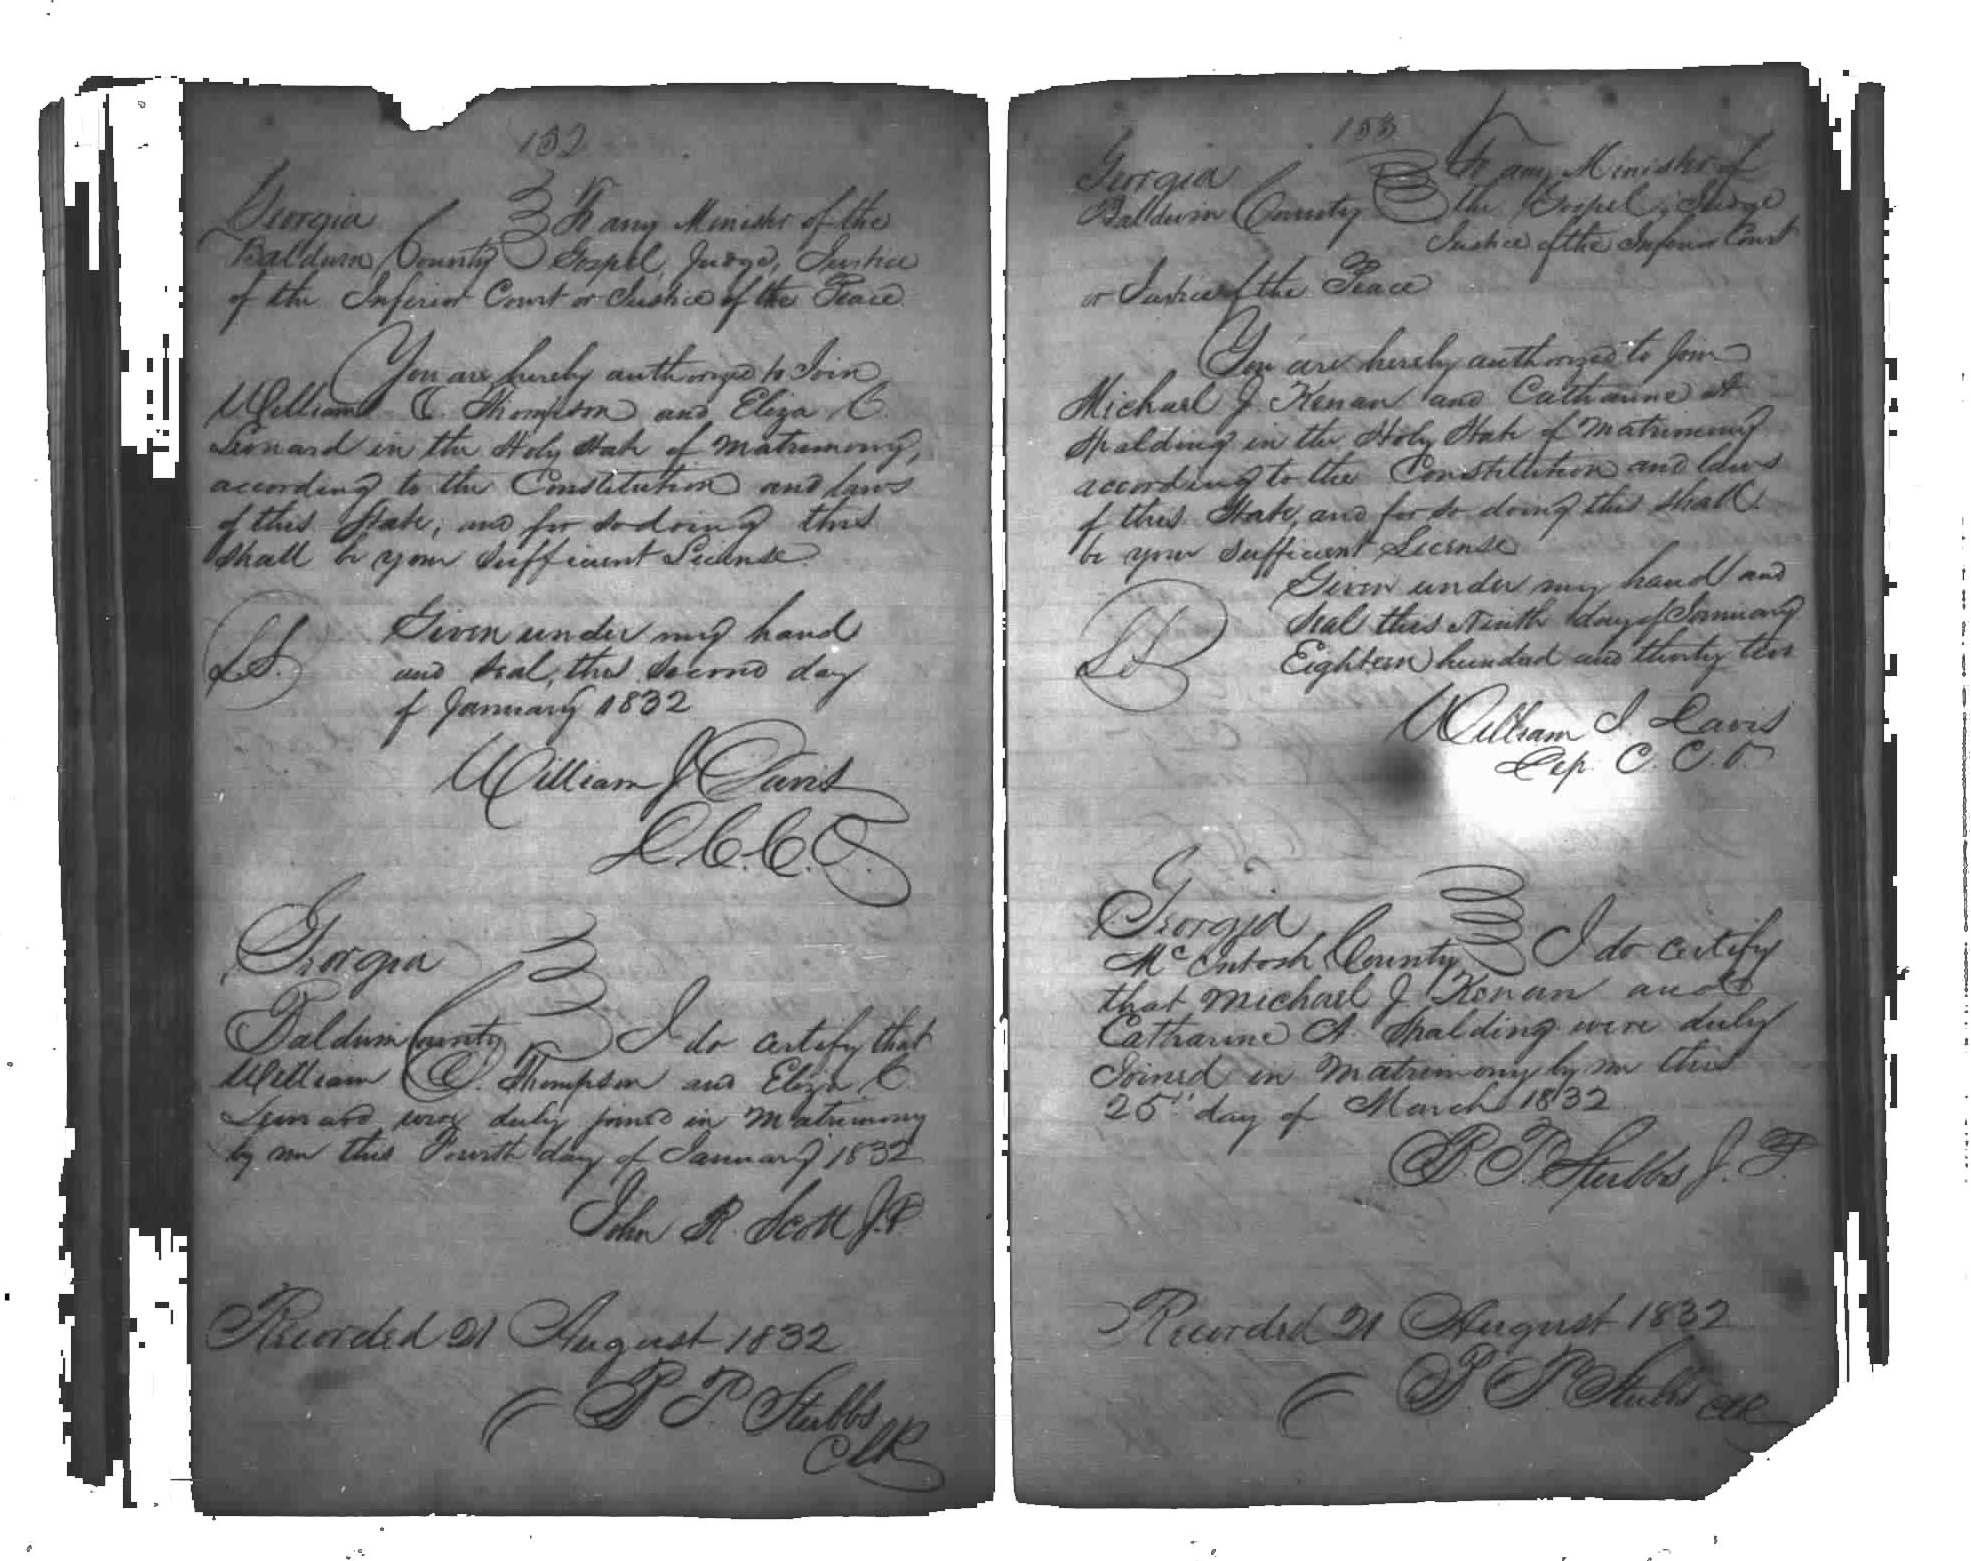 132
Georgia
Baldwin County } To any Minister of the
Gospel, Judge, Justice
of the Inferior Court or Justice of the Peace.
You are hereby authorized to Join
William C. Thompson and Eliza C.
Leonard in the Holy State of Matrimony,
according to the Constitution and laws
of this State, and for so doing this
shall be your sufficient License.
L.S. Given under my hand
and seal, this second day
of January 1832
William J Davis
D. C. C. O.
Georgia
Baldwin County } I do certify that
William C. Thompson and Eliza C.
Leonard were duly joined in Matrimony
by me this Fourth day of January 1832
John R. Scott J.P.
Recorded 21 August 1832
B P. Stubbs
Clk
133
Georgia
Baldwin County } To any Minister of
the Gospel, Judge
Justice of the Inferior Court
or Justice of the Peace
You are hereby authorized to Join
Michael J. Kenan and Catharine A
Spalding in the Holy State of Matrimony
according to the Constitution and laws
of this State, and for so doing this shall
be your sufficient License
L.S. Given under my hand and
seal this Ninth day of January
Eighteen hundred and thirty two
William J. Davis
Dep. C. C. O.
Georgia
McIntosh County } I do certify
that Michael J. Kenan and
Catharine A. Spalding were duly
Joined in Matrimony by me this
25" day of March 1832
B. P. Stubbs J. P.
Recorded 21 August 1832
B P Stubbs Clk